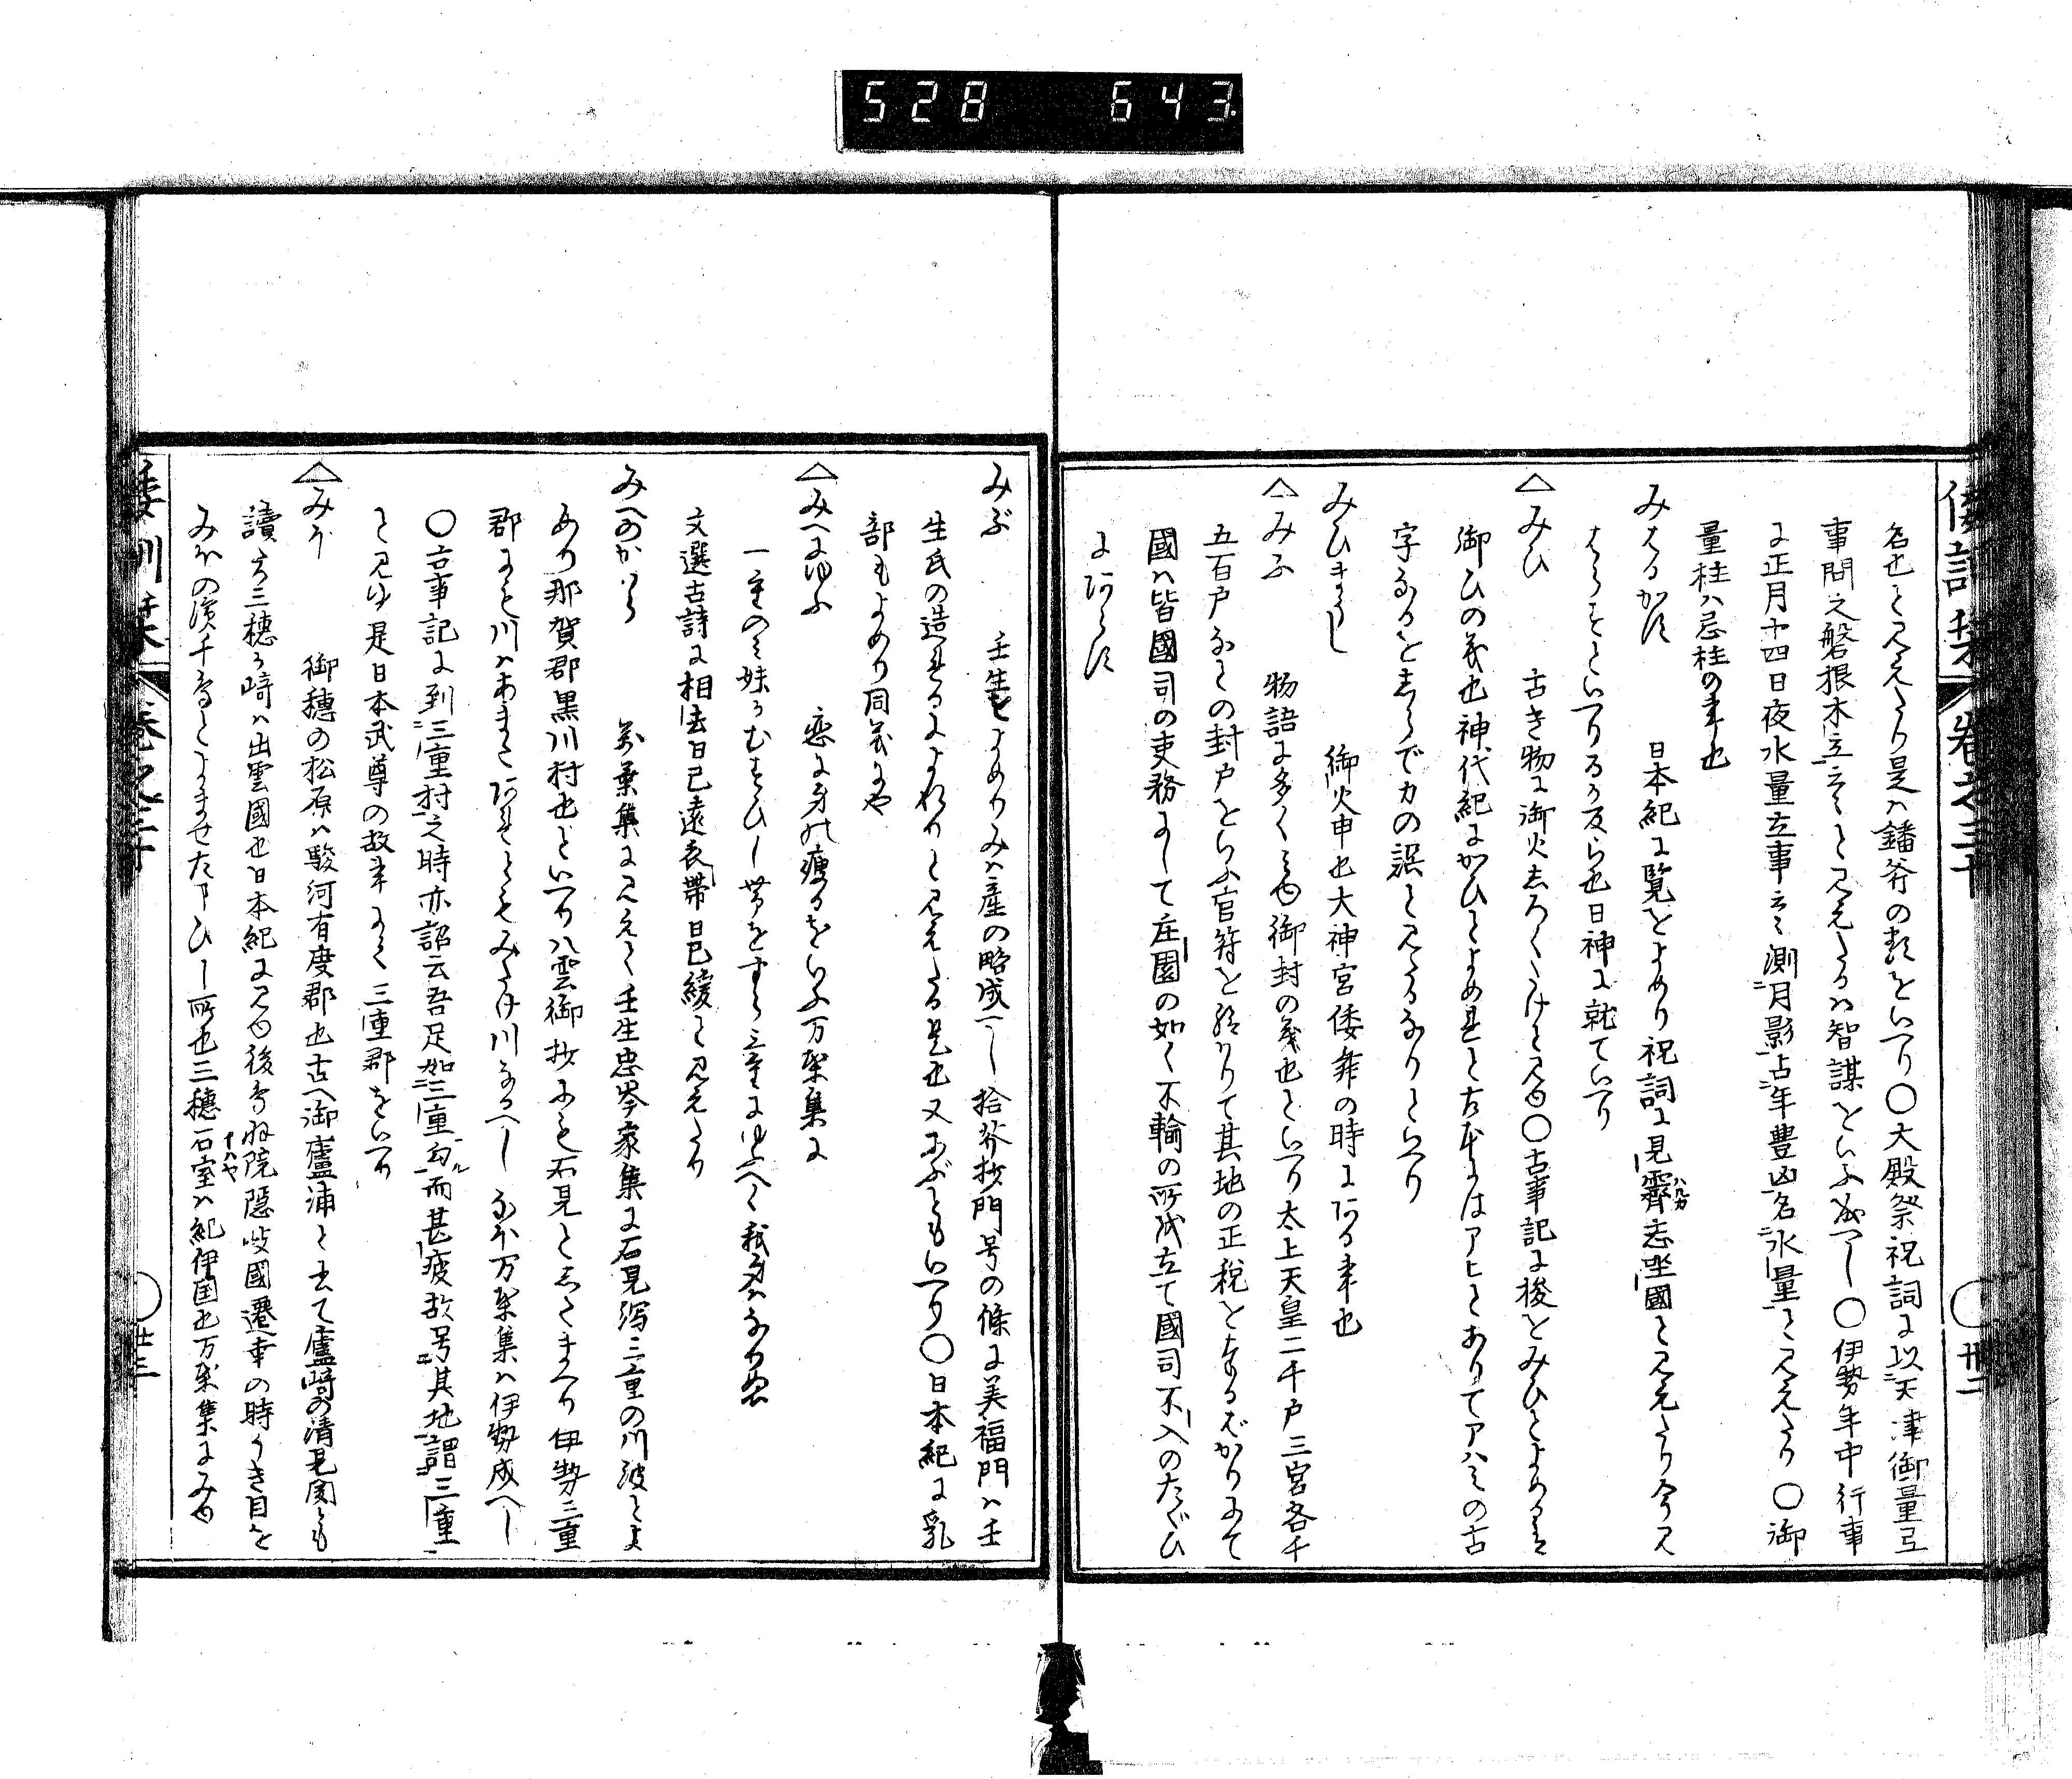 528 643
倭訓栞 巻之三十 ○ 卅二
名也と見えたり是は鐇斧の類をいへり○大殿祭祝詞に以天津御量弖
事問之磐根木立云々と見えたるは智謀といふ成へし○伊勢年中行事
に正月十四日夜水量立事云々測月影占年豊凶名水量と見えたり○御
量柱ハ忌柱の事也
みはるかす 日本紀に覧をよめり祝詞に見霽志坐國と見えたり今見
はらすといへるか如し也日神に就ていへり
△みひ 古き物に御火しろくたけと見ゆ○古事記に稜をみひとよめるは
御ひの義也神代紀にかひとよめれと古本にはアヒとありてアハミの古
字なるをしらでカの誤と見たるなりといへり
みひまうし 御火申也大神宮倭舞の時にある事也
△みふ 物語に多くみゆ御封の義也といへり太上天皇二千戸三宮各千
五百戸なとの封戸をいふ官符を給ハりて其地の正税をとるばかりにて
國ハ皆國司の吏務にして庄園の如く不輸の所職立て國司不入のたぐひ
にあらす
みぶ 壬生をよめりみハ産の略成へし拾芥抄門号の條に美福門ハ壬
生氏の造れるによれりと見えたる是也又にぶともいへり○日本紀に乳
部もよめり同義にや
△みへにゆふ 恋に身の痩るをいふ万葉集に
一重のみ妹かむすひし帯をすら三重にゆふへく我身ハなりぬ
文選古詩に相去日已遠衣帯日已緩と見えたり
みへのかはら 万葉集に見えて壬生忠岑家集に石見潟三重の川波とよ
めり那賀郡黒川村也といへり八雲御抄にも石見としたまへり伊勢三重
郡にも川ハあまたあれともみたけ川なるへしなほ万葉集ハ伊勢成へし
○古事記に到三重村之時亦詔云吾足如三重勾而甚疲故号其地謂三重
と見ゆ是日本武尊の故事にて三重郡をいへり
△みほ 御穂の松原ハ駿河有度郡也古へ御廬浦と云て廬崎の清見関とも
讀り三穂か崎ハ出雲國也日本紀に見ゆ後鳥羽院隠岐國遷幸の時うき目を
みほの濱千鳥とよませたまひし所也三穂石室ハ紀伊国也万葉集にみゆ
倭訓栞 巻之三十 ○ 卅三